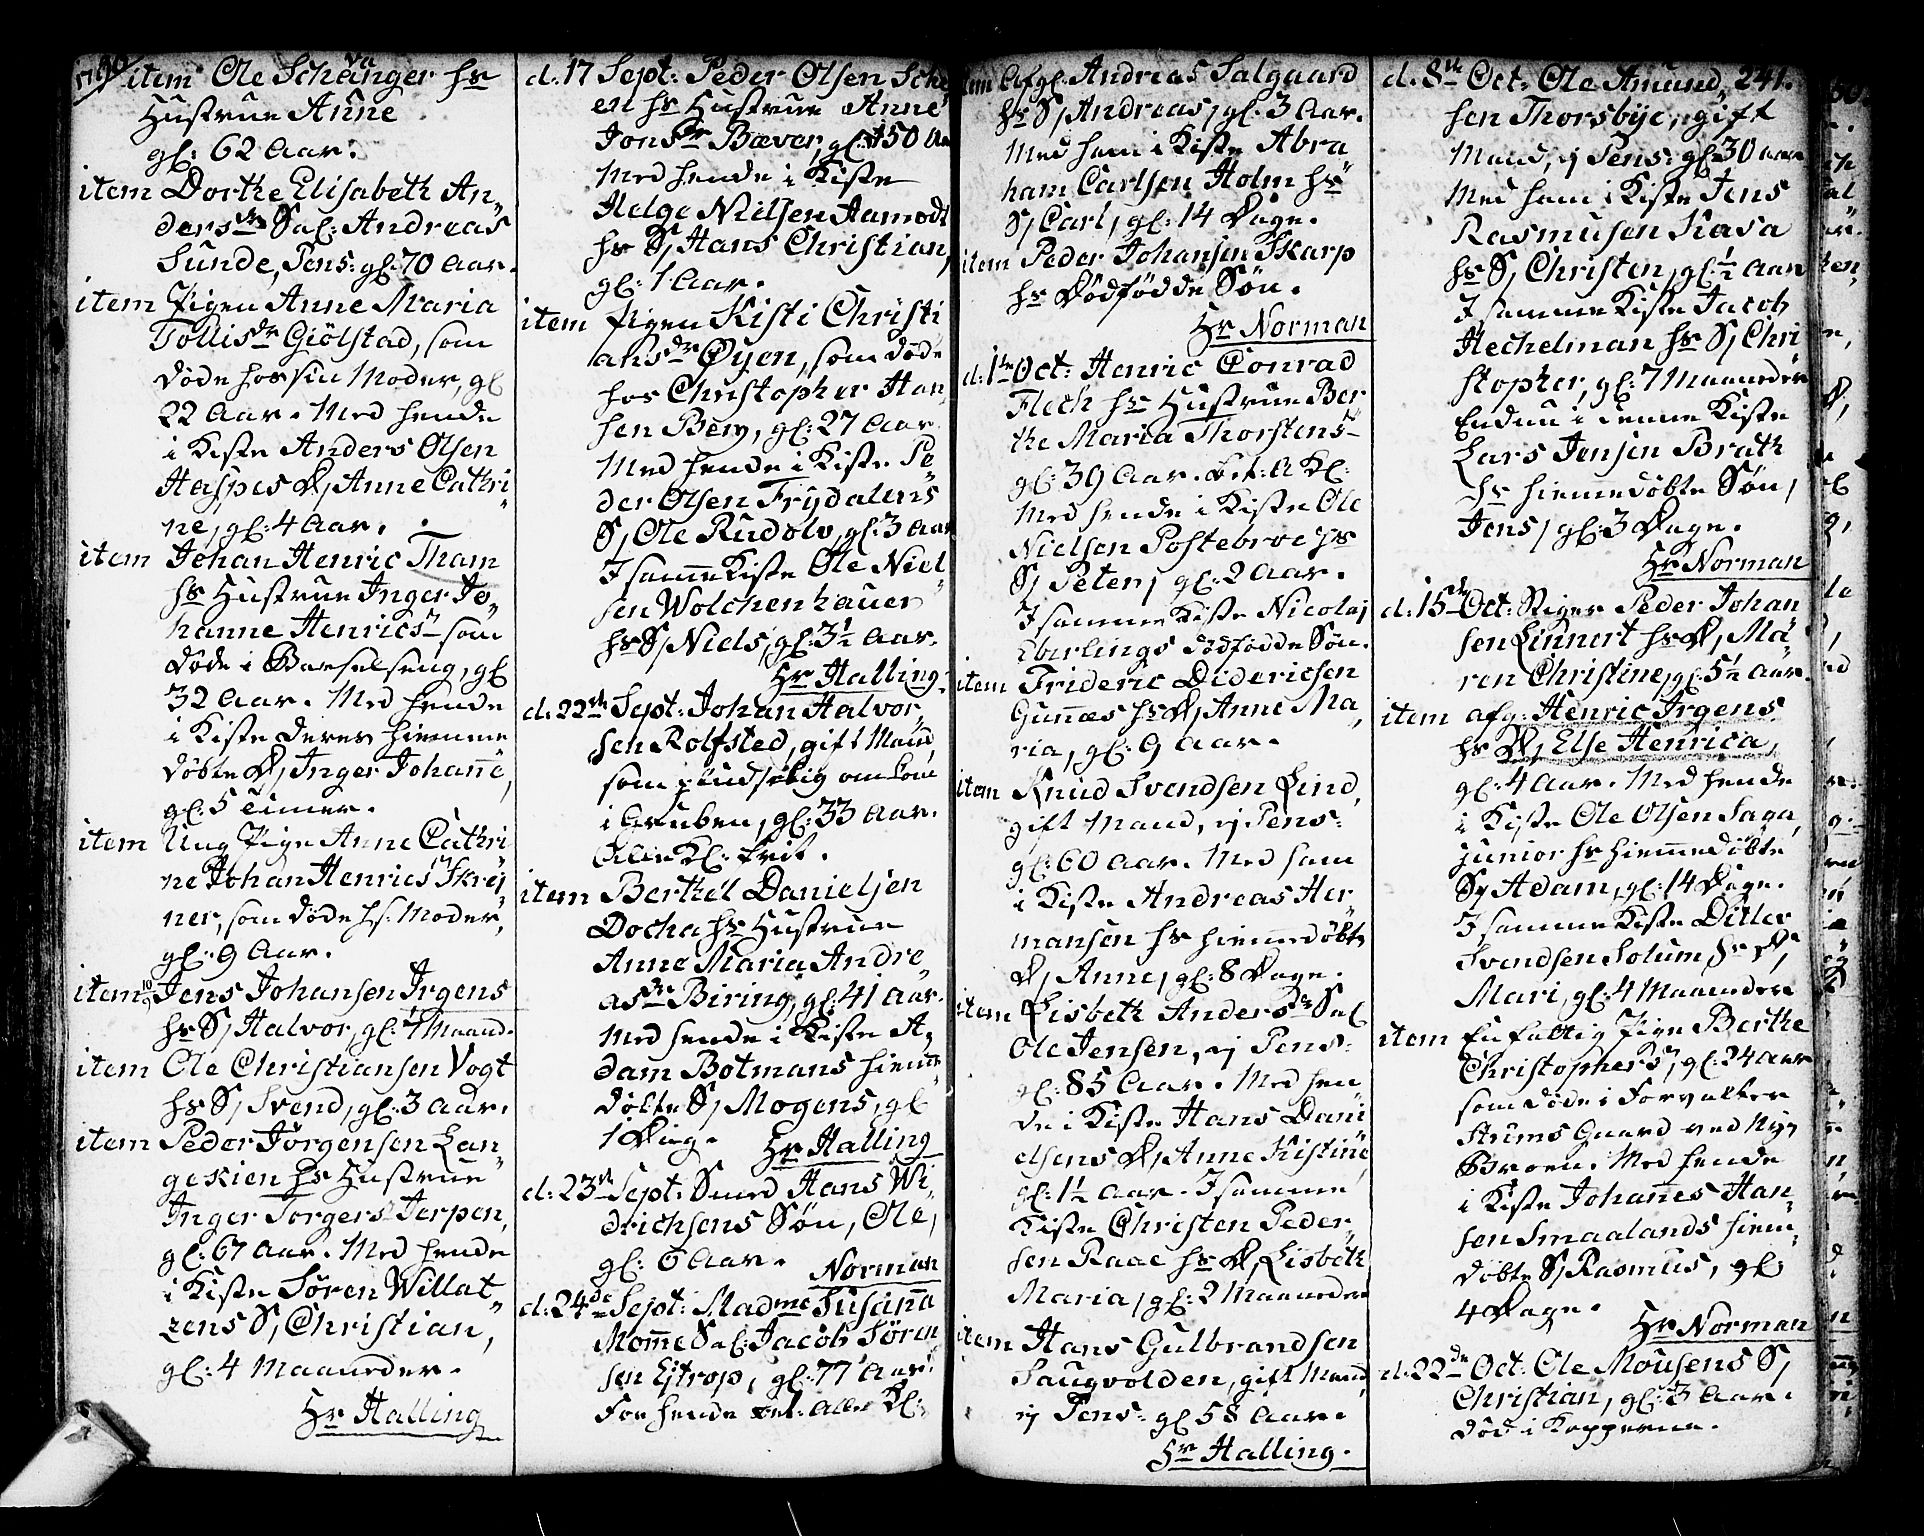 1790
item Ole Schanger hs
va
Hustrue Anne
gl: 62 Aar.
item Dorthe Elisabeth An„
dersdr Sal: Andreas
Sunde, Pens: gl: 70 Aar.
item Pigen Anne Maria
Tollisdr Giölstad, som
döde hos sin Moder, gl
22 Aar. Med hende
i Kiste Anders Olsen
Haspes D, Anne Cathri„
ne, gl: 4 Aar.
item Johan Henric Tham
hs Hustrue Inger Jo„
hanne Henricsdr som
döde i Barselseng, gl
32 Aar. Med hende
i Kiste deres hiemme
döbte D, Inger Johanne,
gl: 5 Timer.
item Ung Pige Anne Cathri
ne Johan Henrics Skrei„
ner, som döde hs: Moder,
gl: 9 Aar.
item 10/9 Jens Johansen Irgens
hs S, Halvor, gl: 4 Maand.
item Ole Christiansen Vogt
hs S, Svend, gl: 3 Aar.
item Peder Jörgensen Lan„
gekien hs Hustrue
Inger Torgers Jerpen,
gl: 67 Aar. Med hende
i Kiste Sören Willat„
zens S, Christian,
gl: 4 Maaneder.
Hr Halling
d: 17 Sept: Peder Olsen Sche
en hs Hustrue Anne
Jonsdr Bæver, gl: 50 Aar
Med hende i Kiste
Helge Nielsen Aamodt
hs S, Hans Christian,
gl: 1 Aar.
item Pigen Kisti Christi
ansdr Öyen, som döde
hos Christopher Han
sen Berg, gl: 27 Aar
Med hende i Kiste Pe„
der Olsen Frydalens
S, Ole Rudolv, gl: 3 Aar
I samme Kiste Ole Niel„
sen Wolchenhauer
hs S, Niels, gl: 3½ Aar.
Hr Halling
d: 22de Sept: Johan Halvor„
sen Rolfsted, gift Mand
som pludselig omkom
i Gruben, gl: 33 Aar.
Alle Kl: frit.
item Berthel Danielsen
Docha hs Hustrue
Anne Maria Andre„
asdr Biring, gl: 41 Aar.
Med hende i Kiste A„
dam Botmans hiemme
döbte S, Mogens, gl
1 Dag. Hr Halling
d: 23de Sept: Smed Hans Wi„
drichsens Sön, Ole,
gl: 6 Aar. Norman
d: 24de Sept: Madme Susanna
Momme Sal: Jacob Sören
sen Ejtrop, gl: 77 Aar.
For hende bet: Alle Kl:
item Afgl: Andreas Salgaard
hs S, Andreas, gl: 3 Aar.
Med ham i Kiste Abra
ham Carlsen Holm hs
S, Carl, gl: 14 Dage.
item Peder Johansen Skarp
hs Dödfödde Sön.
Hr Norman
d: 1te Oct: Henric Conrad
Flech hs Hustrue Ber
the Maria Thorstensdr
gl: 39 Aar. bet: A Kl:
Med hende i Kiste Ole
Nielsen Postebroe hs
S, Peter, gl: 2 Aar.
I samme Kiste Nicolaj
Eberlings dödfödde Sön.
item Frideric Didericsen
Gunnæs hs D, Anne Ma„
ria, gl: 9 Aar.
item Knud Svendsen Lind,
gift Mand, ej Pens:
gl: 60 Aar. Med ham
i Kiste Andreas Her„
mansen hs hiemmedöbte
D, Anne, gl: 8 Dage.
item Lisbeth Andersdr Sal
Ole Jensen, ej Pens:
gl: 85 Aar. Med hen
de i Kiste Hans Dani
elsens D, Anne Kistine
gl: 1½ Aar. I samme
Kiste Christen Peder„
sen Raae hs D, Lisbeth
Maria, gl: 2 Maaneder
item Hans Gulbrandsen
Saugvolden, gift Mand,
ej Pens: gl: 58 Aar.
Hr Halling.
d: 8de Oct: Ole Amund„ 241.
sen Thorsbye, gift
Mand, ej Pens: gl: 30 Aar
Med ham i Kiste Jens
Rasmusen Kasa
hs S, Christen, gl: ½ Aar
I samme Kiste Jacob
Hechelman hs S, Chri
stopher, gl: 7 Maaneder
Endnu i denne Kiste
Lars Jensen Brath
hs hiemmedöbte Sön,
Jens, gl: 3 Dage.
Hr Norman
d: 15de Oct: Stiger Peder Johan
sen Linnert hs D, Ma„
ren Christine, gl: 5½ Aar.
item afg: Henric Irgens
hs D, Else Henrica,
gl: 4 Aar. Med hende
i Kiste Ole Olsen Saga,
junior hs hiemmedöbte
S, Adam, gl: 14 Dage.
I samme Kiste Ditlev
Svendsen Solum hs D,
Mari, gl: 4 Maaneder
item En fattig Pige Berthe
Christophersdr, gl: 24 Aar
som döde i Forvalter
Stums Gaard ved Nye
Broen. Med hende
i Kiste Johannes Han„
sen Smaalands hiem„
döbte S, Rasmus, gl
4 Dage.
Hr Norman
d: 22de Oct: Ole Mousens S,
Christian, gl: 3 Aar.
död i Kopperne.